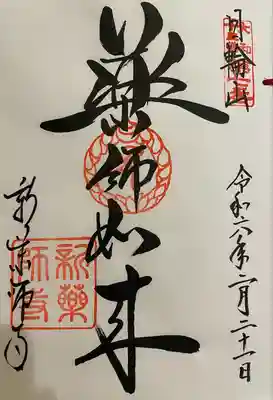 日輪山
令和六年二月二十一日
薬師如来
新薬師寺
新藥
師寺